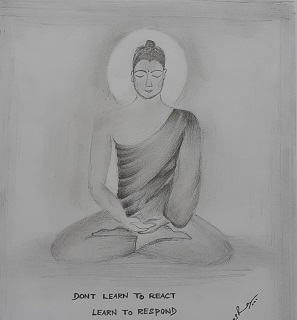 DONT LEARN TO REACT
LEARN TO RESPOND